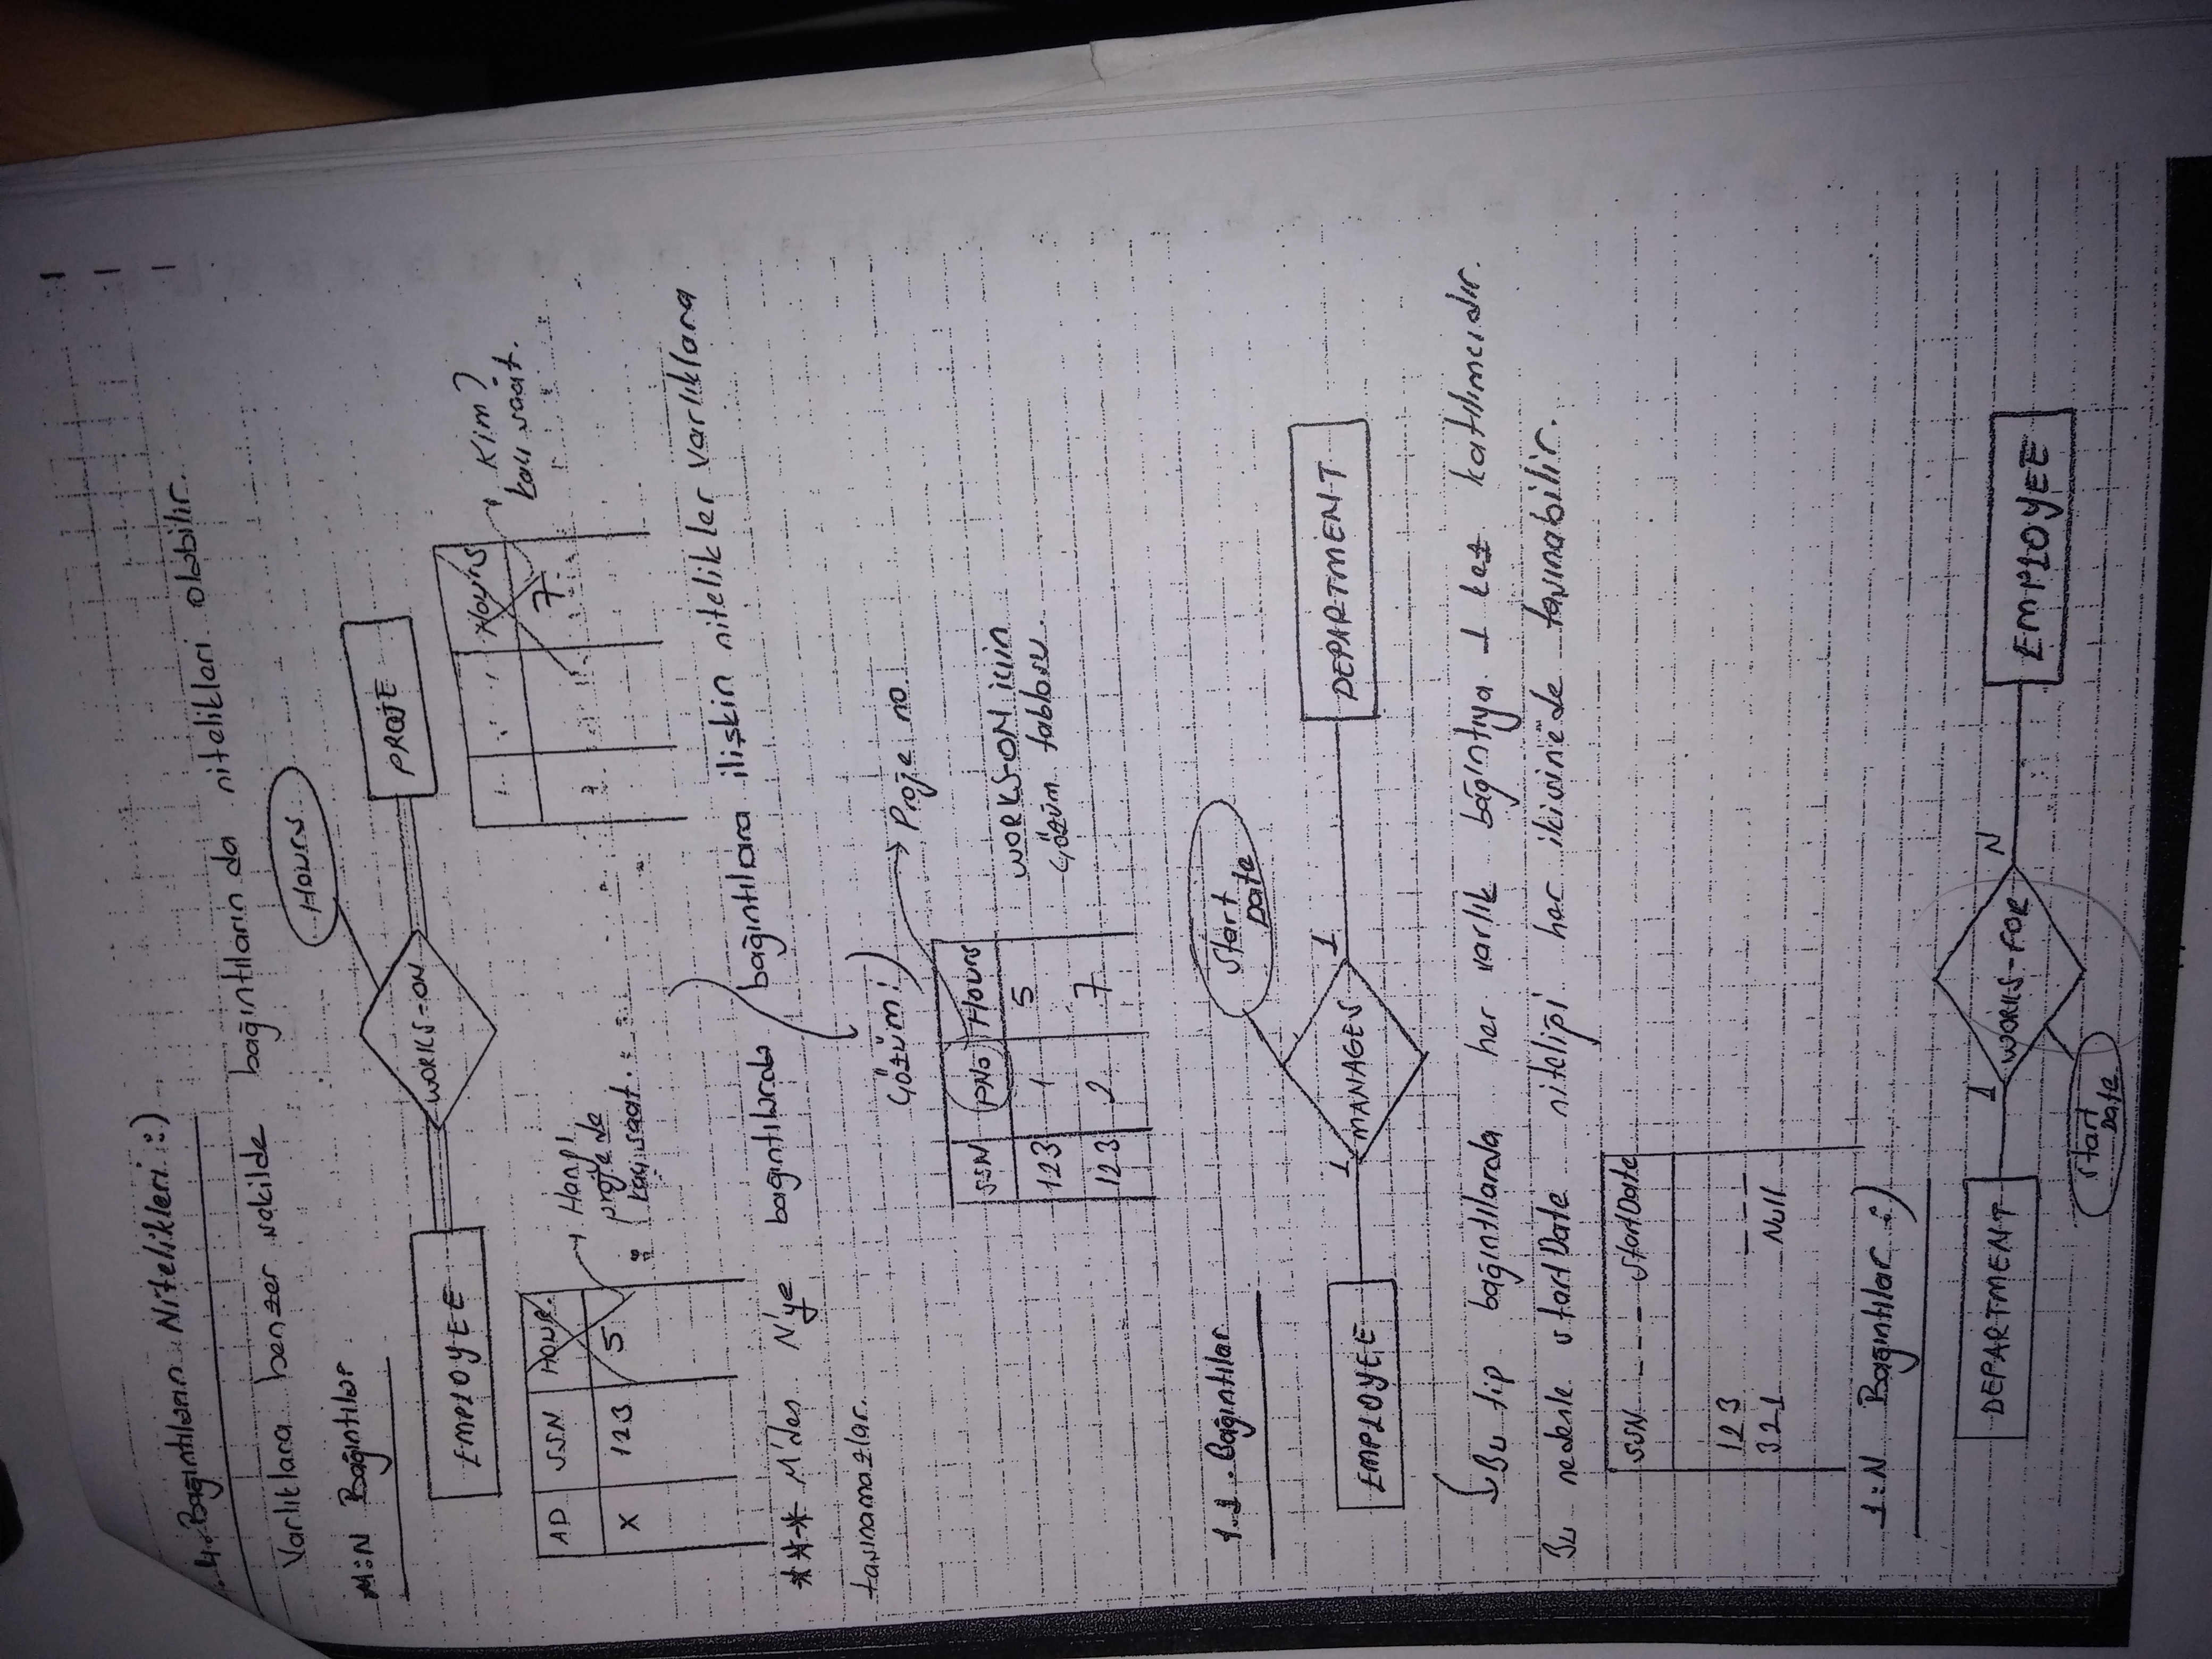 4. Bağıntıların Nitelikleri :)
Varlıklara benzer şekilde bağıntıların da nitelikleri olabilir.
M:N Bağıntılar
Hours
EMPLOYEE WORKS-ON PROJE
AD SSN Hour
X 123 5
Hangi projede kaç saat.
Hours
7
Kim? kaç saat.
*** M'den N'ye bağıntılarda bağıntılara ilişkin nitelikler varlıklara
taşınamazlar.
Çözüm :)
SSN PNo Hours
123 1 5
123 2 7
Proje no
WORKS-ON için
çözüm tablosu.
1.1 Bağıntılar
Start Date
EMPLOYEE 1 MANAGES 1 DEPARTMENT
Bu tip bağıntılarda her varlık bağıntıya 1 kez katılımcıdır.
Bu nedenle startDate niteliği her ikisine de taşınabilir.
SSN - - - StartDate
123 - - -
321 Null
1:N Bağıntılar :)
DEPARTMENT 1 WORKS-FOR N EMPLOYEE
Start Date